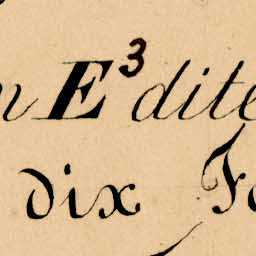 E³ dite
dix